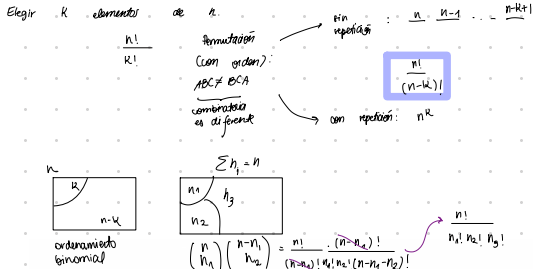 Elegir k elementos de n.
n!
k!
Permutación
(con orden):
ABC ≠ BCA
combinatoria
es diferente
sin
repetición : n n-1 ... n-k+1
n!
(n-k)!
con repetición: n^k
n
k
n-k
ordenamiento
binomial
∑ n_i = n
n1 n3
n2
(n n_1) (n-n_1 n_2) = n! (n-n_1)! / (n-n_1)! n_1! n_2! (n-n_1-n_2)!
n!
n_1! n_2! n_3!